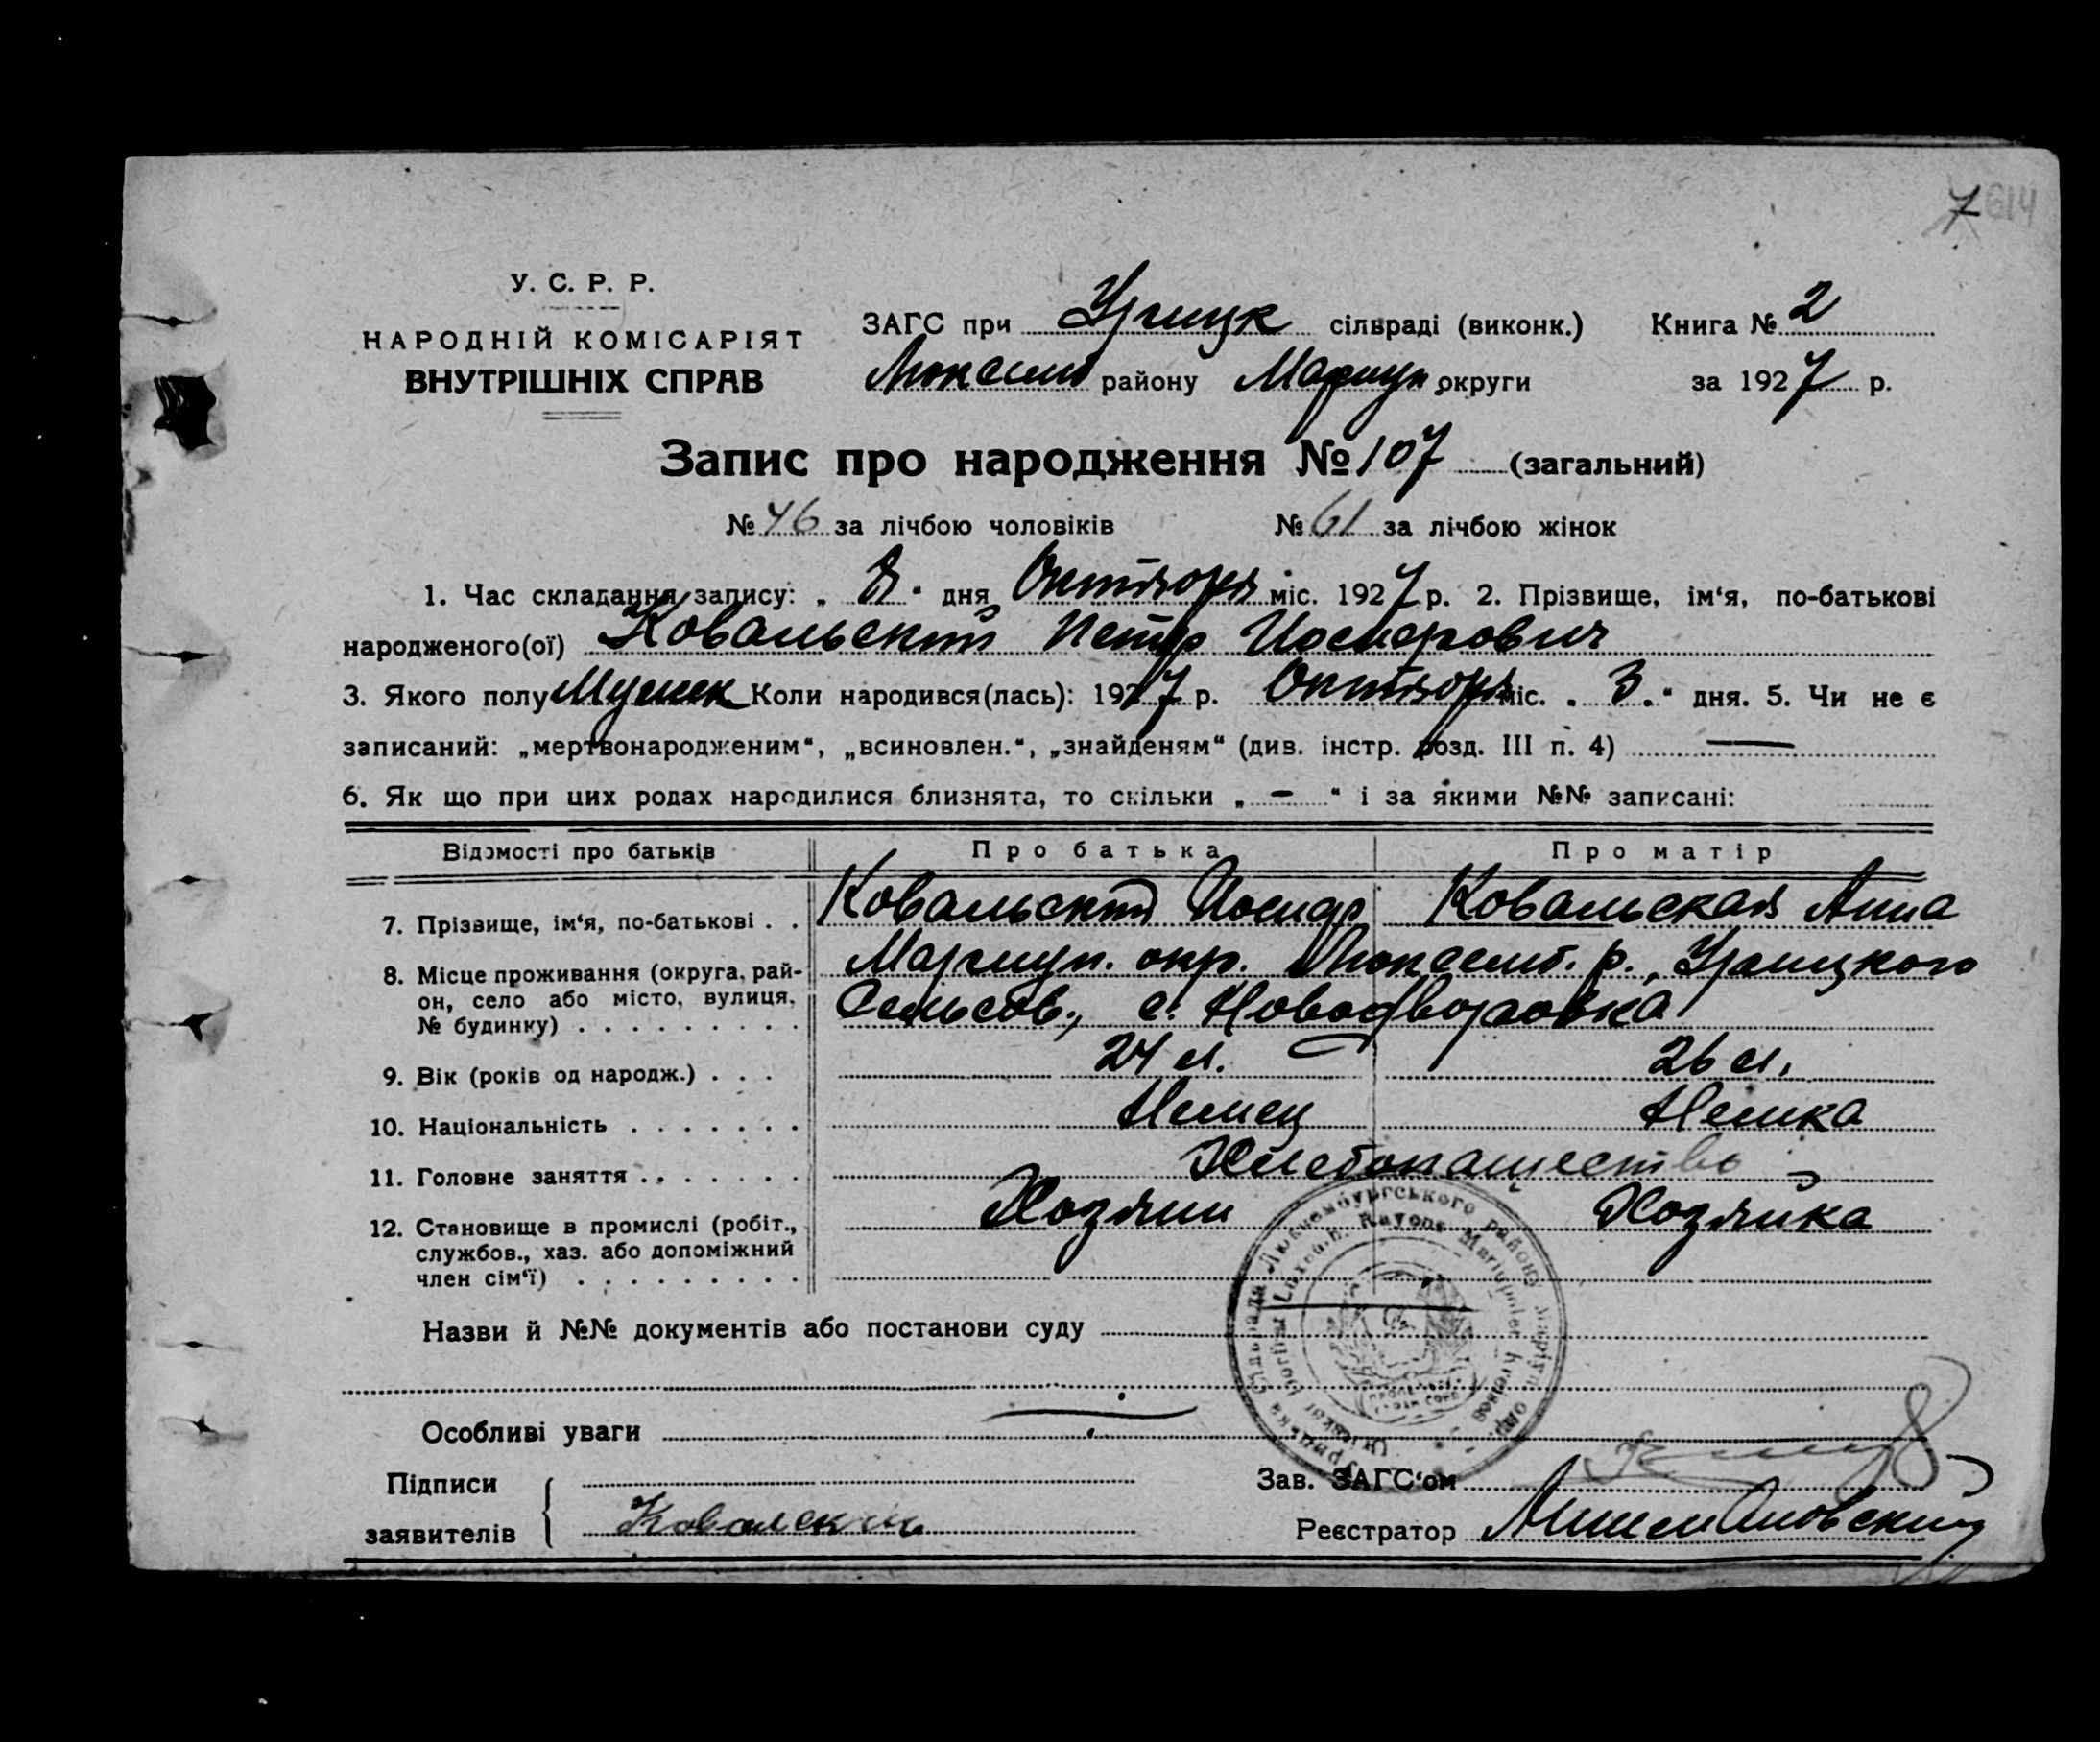 7 614
У. С. Р. Р.
НАРОДНІЙ КОМІСАРІЯТ
ВНУТРІШНІХ СПРАВ
ЗАГС при Урицк сільраді (виконк.) Книга № 2
Люксемб району Мариуп округи за 1927 р.
Запис про народження № 107 (загальний)
№ 46 за лічбою чоловіків № 61 за лічбою жінок
1. Час складання запису: „ 8 " дня Октября міс. 1927 р. 2. Прізвище, ім'я, по-батькові
народженого(ої) Ковальский Петр Иосифович
3. Якого полу Мужск Коли народився(лась): 1927 р. Октября міс. „ 3 " дня. 5. Чи не є
записаний: „мертвонародженим", „всиновлен.", „знайденям" (див. інстр. розд. III п. 4) —
6. Як що при цих родах народилися близнята, то скільки „ - " і за якими №№ записані:
Відомості про батьків Про батька Про матір
7. Прізвище, ім'я, по-батькові . . Ковальский Иосиф Ковальская Анна
8. Місце проживання (округа, рай- Мариуп. окр. Люксемб. р., Урицкого
он, село або місто, вулиця, Сельсов., с. Новодворовка
№ будинку) . . . . . . . . .
9. Вік (років од народж.) . . . 24 л. 26 л.
10. Національність . . . . . . . Немец Немка
11. Головне заняття . . . . . . . Хлебопашество
12. Становище в промислі (робіт., Хозяин Хозяйка
службов., хаз. або допоміжний
член сім'ї) . . . . . . . . .
Назви й №№ документів або постанови суду
Люксембургського району Маріуп. окр.
Rayons Mariupoler Kreises
Особливі уваги
Підписи
заявителів Ковалский
Зав. ЗАГС'ом
Реєстратор